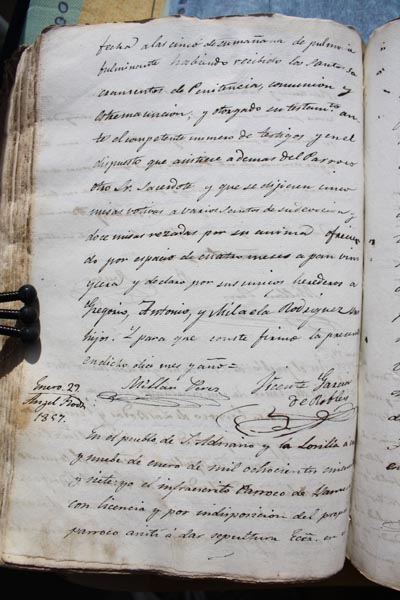 fecha a las cinco de su mañana de pulmonia
fulminente habiendo recibido los santos sa
cramentos de Penitencia, comunion y
estremauncion, y otorgado su testamto an
te el competente numero de testigos y en el
dispuesto que asistiere ademas del Parroco
otro Sr. Sacerdote y que se digesen cinco
misas votivas a varios santos de su devocion, y
doce misas rezadas por su anima
do por espacio de cuatro meses a pan vino
y cera, y declaro por sus unicos herederos a
Gregorio, Antonio, y Micaela Rodriguez sus
hijos. Y para que conste firmo la presente
en dicho dia mes y año=
Millan Perez
Vicente Garcia
de Robles
Enero 29
Angel Rodz
1857.
En el pueblo de S. Adriano y la Losilla a
y nuebe de enero de mil ochocientos cincuenta
y siete; yo el infrascrito Parroco de
con licencia y por indisposicion del propio
parroco asisti á dar sepultura Ecca. en